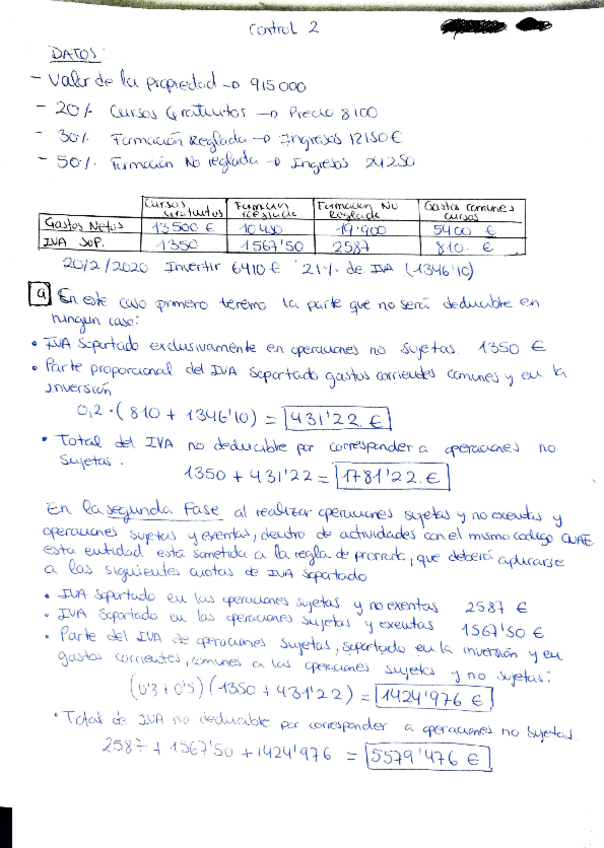 Control 2
DATOS:
- Valor de la propiedad → 915000
- 20% Cursos Gratuitos → Precio 8100
- 30% Formación Reglada → Ingresos 12150€
- 50% Formación No reglada → Ingresos 24250
Cursos Gratuitos Formación Reglada Formación No Reglada Gastos comunes cursos
Gastos Netos 13500 € 10450 19'900 5400 €
IVA SOP. 1350 1567'50 2587 810 €
20/2/2020 Invertir 6410€ 21% de IVA (1346'10)
a) En este caso primero teremo la parte que no será deducible en
ningun caso:
• IVA Soportado exclusivamente en operaciones no sujetas. 1350 €
• Parte proporcional del IVA soportado gastos corrientes comunes y en la
inversión
0,2·(810 + 1346'10) = 431'22 €
• Total del IVA no deducible por corresponder a operaciones no
sujetas:
1350 + 431'22 = 1781'22 €
En la segunda Fase al realizar operaciones sujetas y no exentas y
operaciones sujetas y exentas, dentro de actividades con el mismo codigo CNAE
esta entidad está sometida a la regla de prorrata, que deberá aplicarse
a las siguientes cuotas de IVA soportado
• IVA soportado en las operaciones sujetas y no exentas 2587 €
• IVA soportado en las operaciones sujetas y exentas 1567'50 €
• Parte del IVA de operaciones sujetas, soportado en la inversión y en
gastos corrientes, comunes a las operaciones sujetas y no sujetas:
(0'3 + 0'5) (1350 + 431'22) = 1424'976 €
• Total de IVA no deducible por corresponder a operaciones no sujetas
2587 + 1567'50 + 1424'976 = 5579'476 €